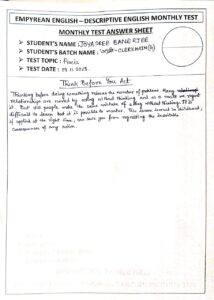 EMPYREAN ENGLISH – DESCRIPTIVE ENGLISH MONTHLY TEST
MONTHLY TEST ANSWER SHEET
➤ STUDENT'S NAME : JOYASREE BANERJEE
➤ STUDENT'S BATCH NAME : CLERKSHIP
➤ TEST TOPIC : Precis
➤ TEST DATE : 19.11.2023.
Think Before You Act
Thinking before doing something reduces the number of problems. Many
relationships are ruined by acting without thinking and as a result we regret
it. But still people make the same mistake of acting without thinking. It is
difficult to learn but it is possible to master. This lesson learned in childhood,
if applied at the right time, can save you from regretting the inevitable
consequences of any action.